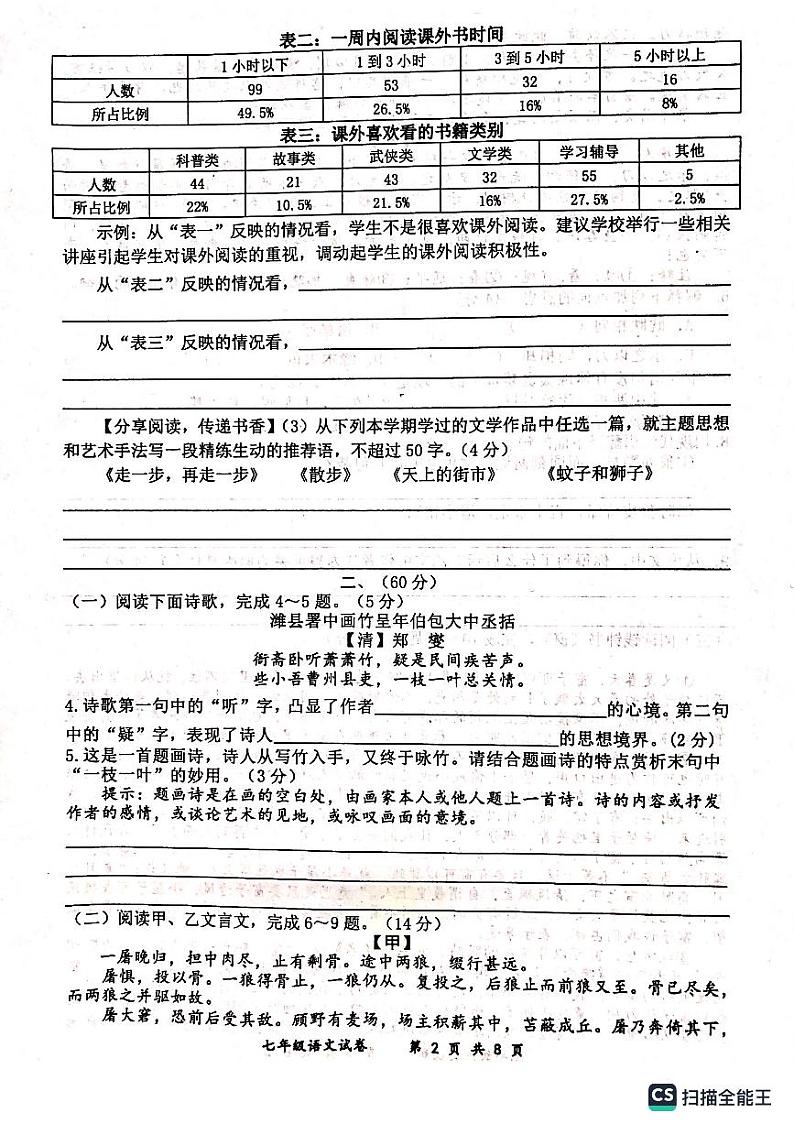 表二：一周内阅读课外书时间
1小时以下 1到3小时 3到5小时 5小时以上
人数 99 53 32 16
所占比例 49.5% 26.5% 16% 8%
表三：课外喜欢看的书籍类别
科普类 故事类 武侠类 文学类 学习辅导 其他
人数 44 21 43 32 55 5
所占比例 22% 10.5% 21.5% 16% 27.5% 2.5%
示例：从“表一”反映的情况看，学生不是很喜欢课外阅读。建议学校举行一些相关
讲座引起学生对课外阅读的重视，调动起学生的课外阅读积极性。
从“表二”反映的情况看，
从“表三”反映的情况看，
【分享阅读，传递书香】（3）从下列本学期学过的文学作品中任选一篇，就主题思想
和艺术手法写一段精练生动的推荐语，不超过50字。（4分）
《走一步，再走一步》 《散步》 《天上的街市》 《蚊子和狮子》
二、（60分）
（一）阅读下面诗歌，完成4～5题。（5分）
潍县署中画竹呈年伯包大中丞括
【清】郑 燮
衙斋卧听萧萧竹，疑是民间疾苦声。
些小吾曹州县吏，一枝一叶总关情。
4.诗歌第一句中的“听”字，凸显了作者的心境。第二句
中的“疑”字，表现了诗人的思想境界。（2分）
5.这是一首题画诗，诗人从写竹入手，又终于咏竹。请结合题画诗的特点赏析末句中
“一枝一叶”的妙用。（3分）
提示：题画诗是在画的空白处，由画家本人或他人题上一首诗。诗的内容或抒发
作者的感情，或谈论艺术的见地，或咏叹画面的意境。
（二）阅读甲、乙文言文，完成6～9题。（14分）
【甲】
一屠晚归，担中肉尽，止有剩骨。途中两狼，缀行甚远。
屠惧，投以骨。一狼得骨止，一狼仍从。复投之，后狼止而前狼又至。骨已尽矣，
而两狼之并驱如故。
屠大窘，恐前后受其敌。顾野有麦场，场主积薪其中，苫蔽成丘。屠乃奔倚其下，
七年级语文试卷 第2页共8页
CS 扫描全能王